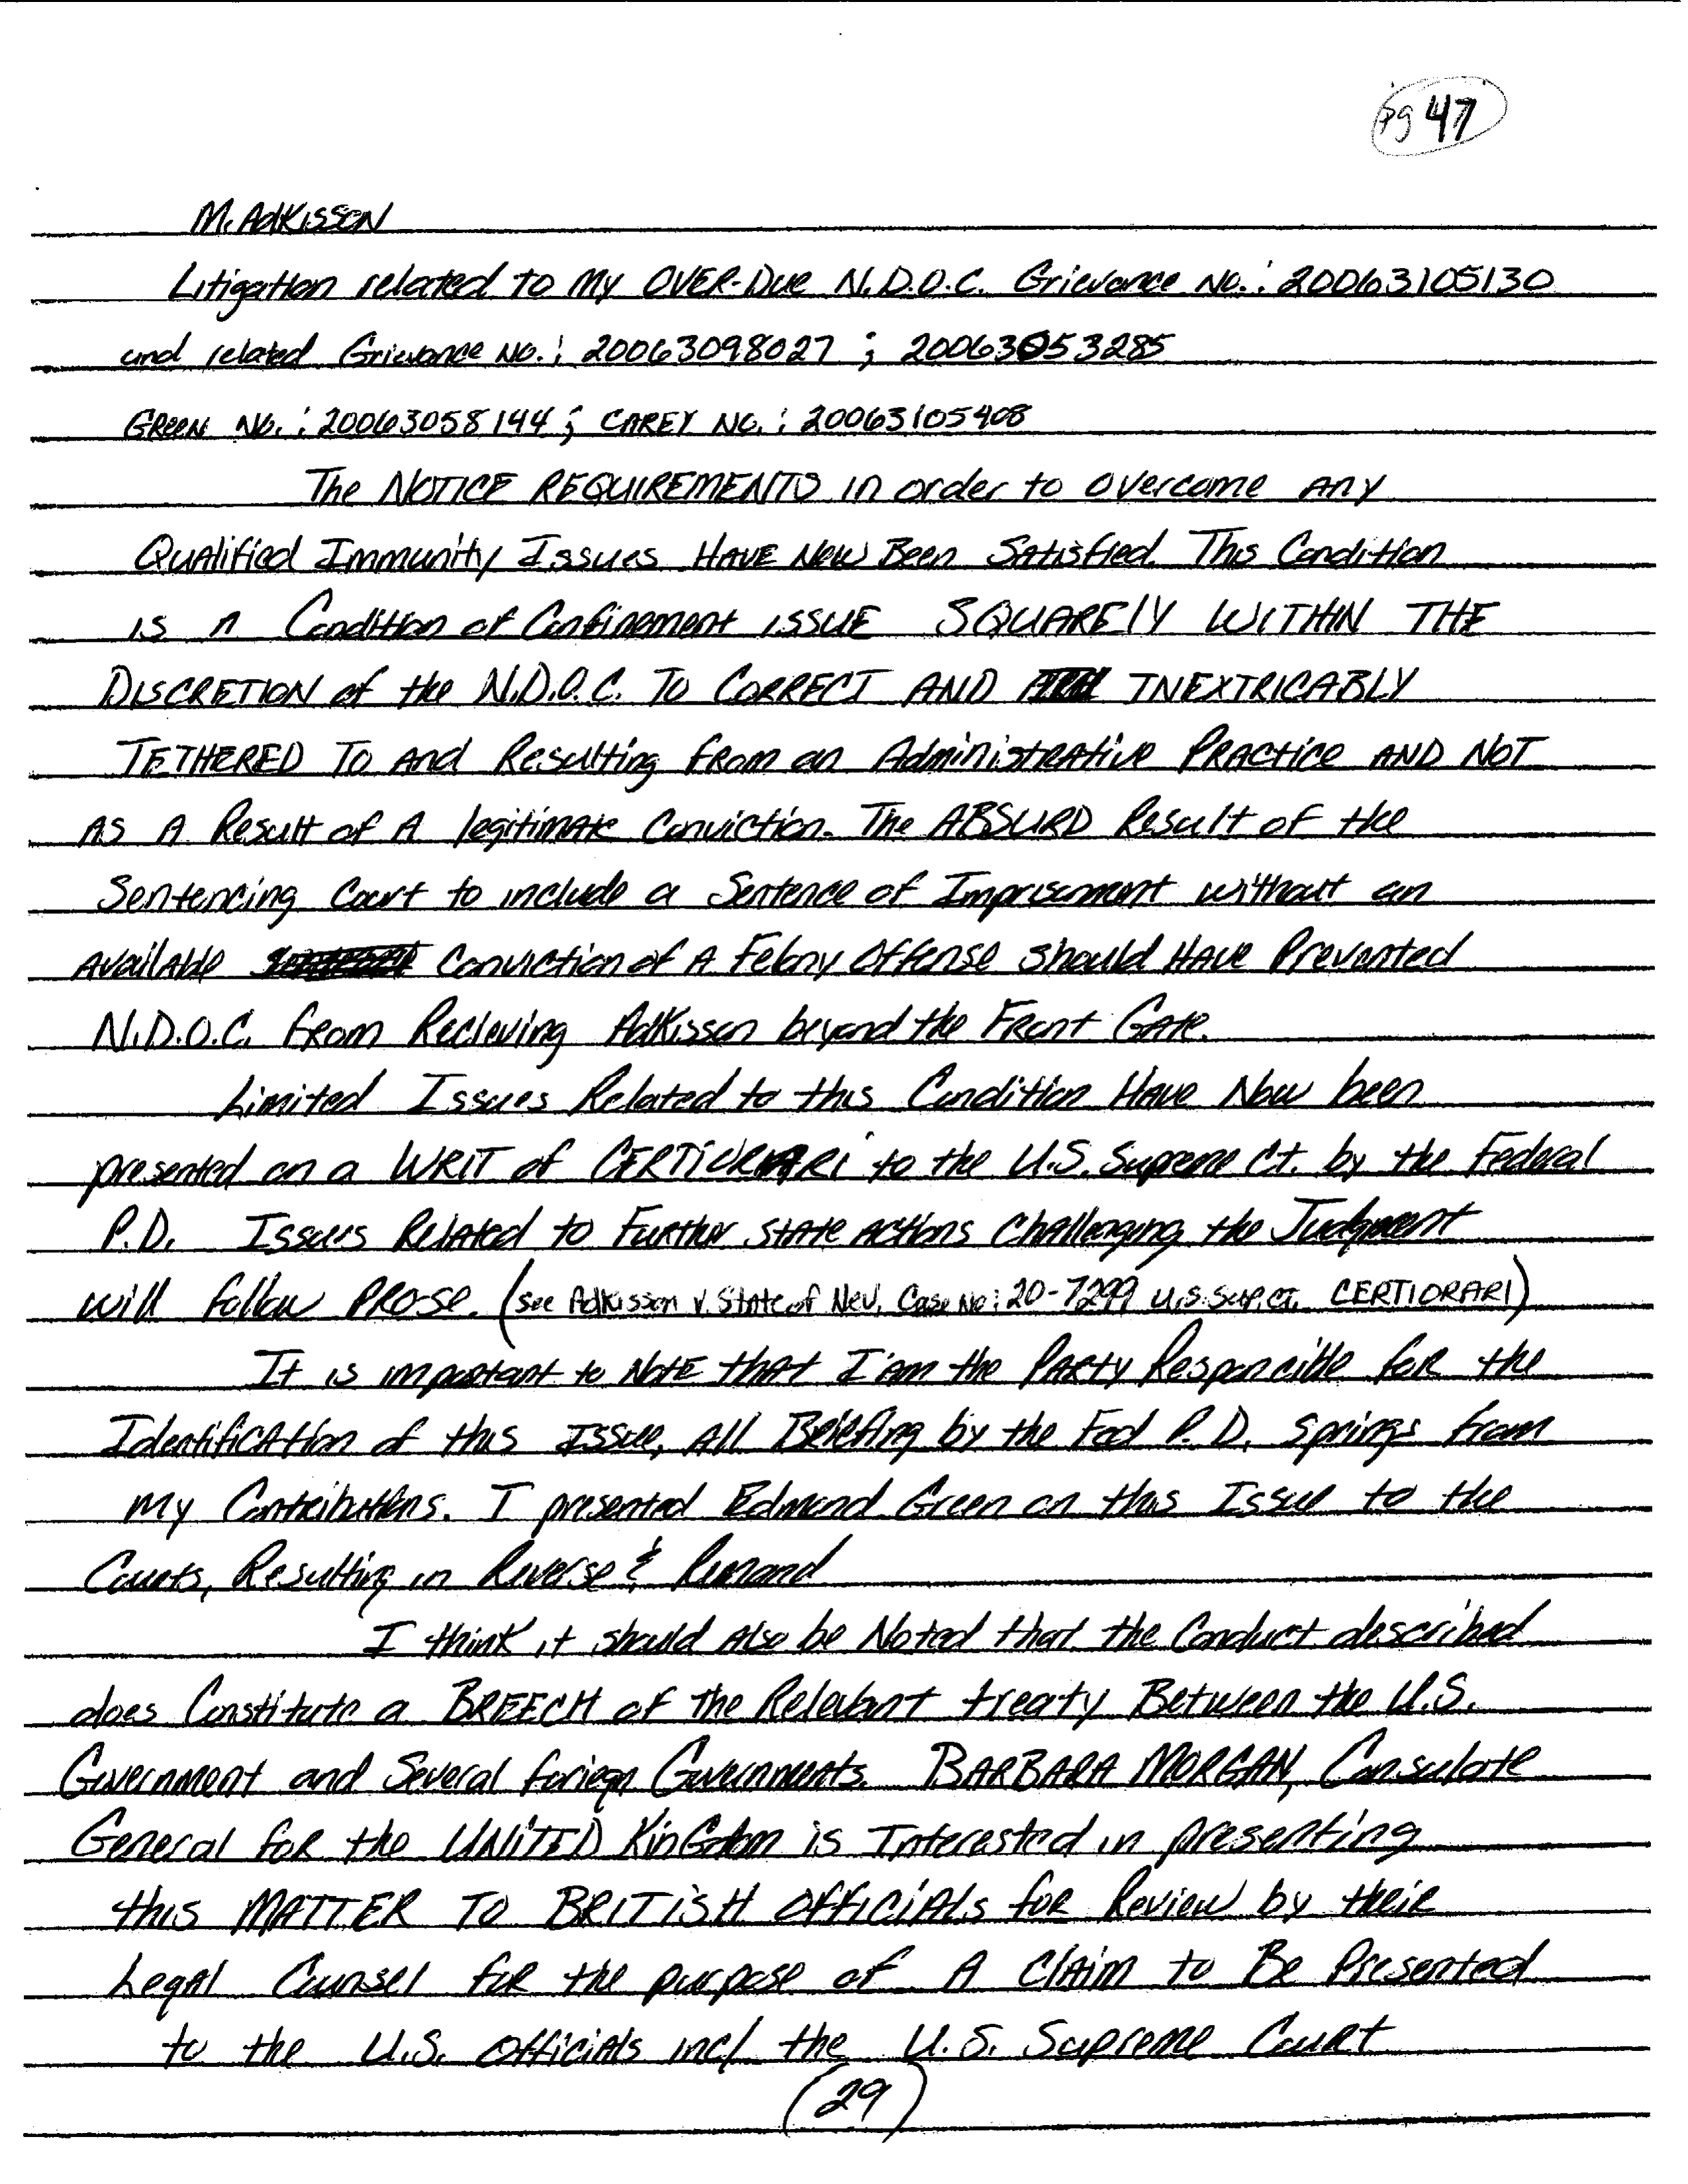 pg 47
M. Adkisson
Litigation related to my OVER-Due N.D.O.C. Grievance No.: 20063105130
and related Grievance No.: 20063098027 ; 20063053285
GREEN No.: 20063058144 ; CAREY NO.: 20063105408
The NOTICE REQUIREMENTS in order to overcome ANY
Qualified Immunity Issues HAVE Now Been Satisfied. This Condition
is A Condition of Confinement ISSUE SQUARELY WITHIN THE
DISCRETION of the N.D.O.C. To CORRECT AND INEXTRICABLY
TETHERED To And Resulting from an Administrative Practice AND NOT
AS A Result of A legitimate Conviction. The ABSURD Result of the
Sentencing Court to include a Sentence of Imprisonment without an
Available Conviction of A Felony Offense should HAVE Prevented
N.D.O.C. from Recieving Adkisson beyond the Front Gate.
Limited Issues Related to this Condition Have Now been
presented on a WRIT of CERTIORARI to the U.S. Supreme Ct. by the Federal
P.D. Issues Related to Further State Actions Challenging the Judgment
will follow PROSE. (see Adkisson v. State of Nev. Case No: 20-7299 U.S. Sup. Ct. CERTIORARI)
It is important to NOTE that I am the PARTY Responcible for the
Identification of this ISSUE, All Briefing by the Fed P.D. springs from
my Contributions. I presented Edmond Green on this Issue to the
Courts, Resulting in Reverse & Remand
I think it should Also be Noted that the Conduct described
does Constitute a BREECH of the Relevant treaty Between the U.S.
Government and Several foriegn Governments. BARBARA MORGAN, Consulate
General for the UNITED KinGdom is Interested in presenting
this MATTER TO BRITISH OFFICIAls for Review by their
Legal Counsel for the purpose of A Claim to Be Presented
to the U.S. officials incl the U.S. Supreme Court
(29)